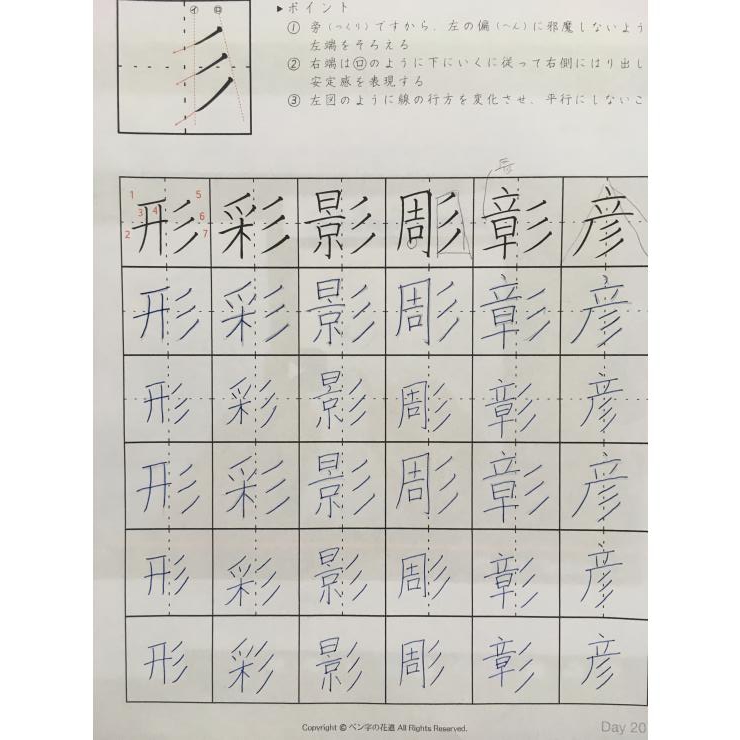 イ ロ
▶ポイント
① 旁(つくり)ですから、左の偏(へん)に邪魔しないよう
左端をそろえる
② 右端は㋺のように下にいくに従って右側にはり出し
安定感を表現する
③ 左図のように線の行方を変化させ、平行にしないこ
形 彩 影 彫 彰 彦
1 2 3 4 5 6 7
形 彩 影 彫 彰 彦
形 彩 影 彫 彰 彦
形 彩 影 彫 彰 彦
形 彩 影 彫 彰 彦
形 彩 影 彫 彰 彦
Copyright © ペン字の花道 All Rights Reserved.
Day 20